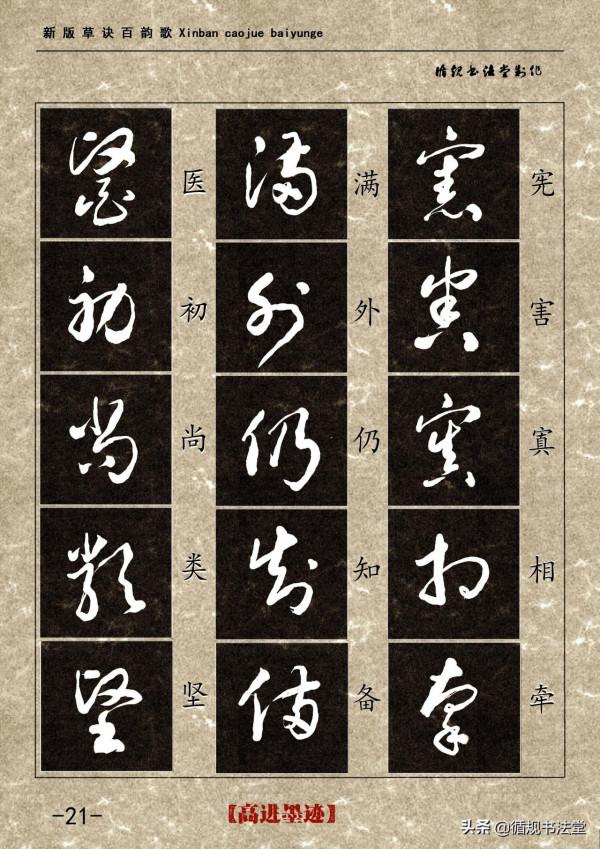 新版草诀百韵歌 Xinban caojue baiyunge
循规书法堂制作
宪害寘相牵
满外仍知备
医初尚类坚
-21-
【高进墨迹】
头条 @循规书法堂